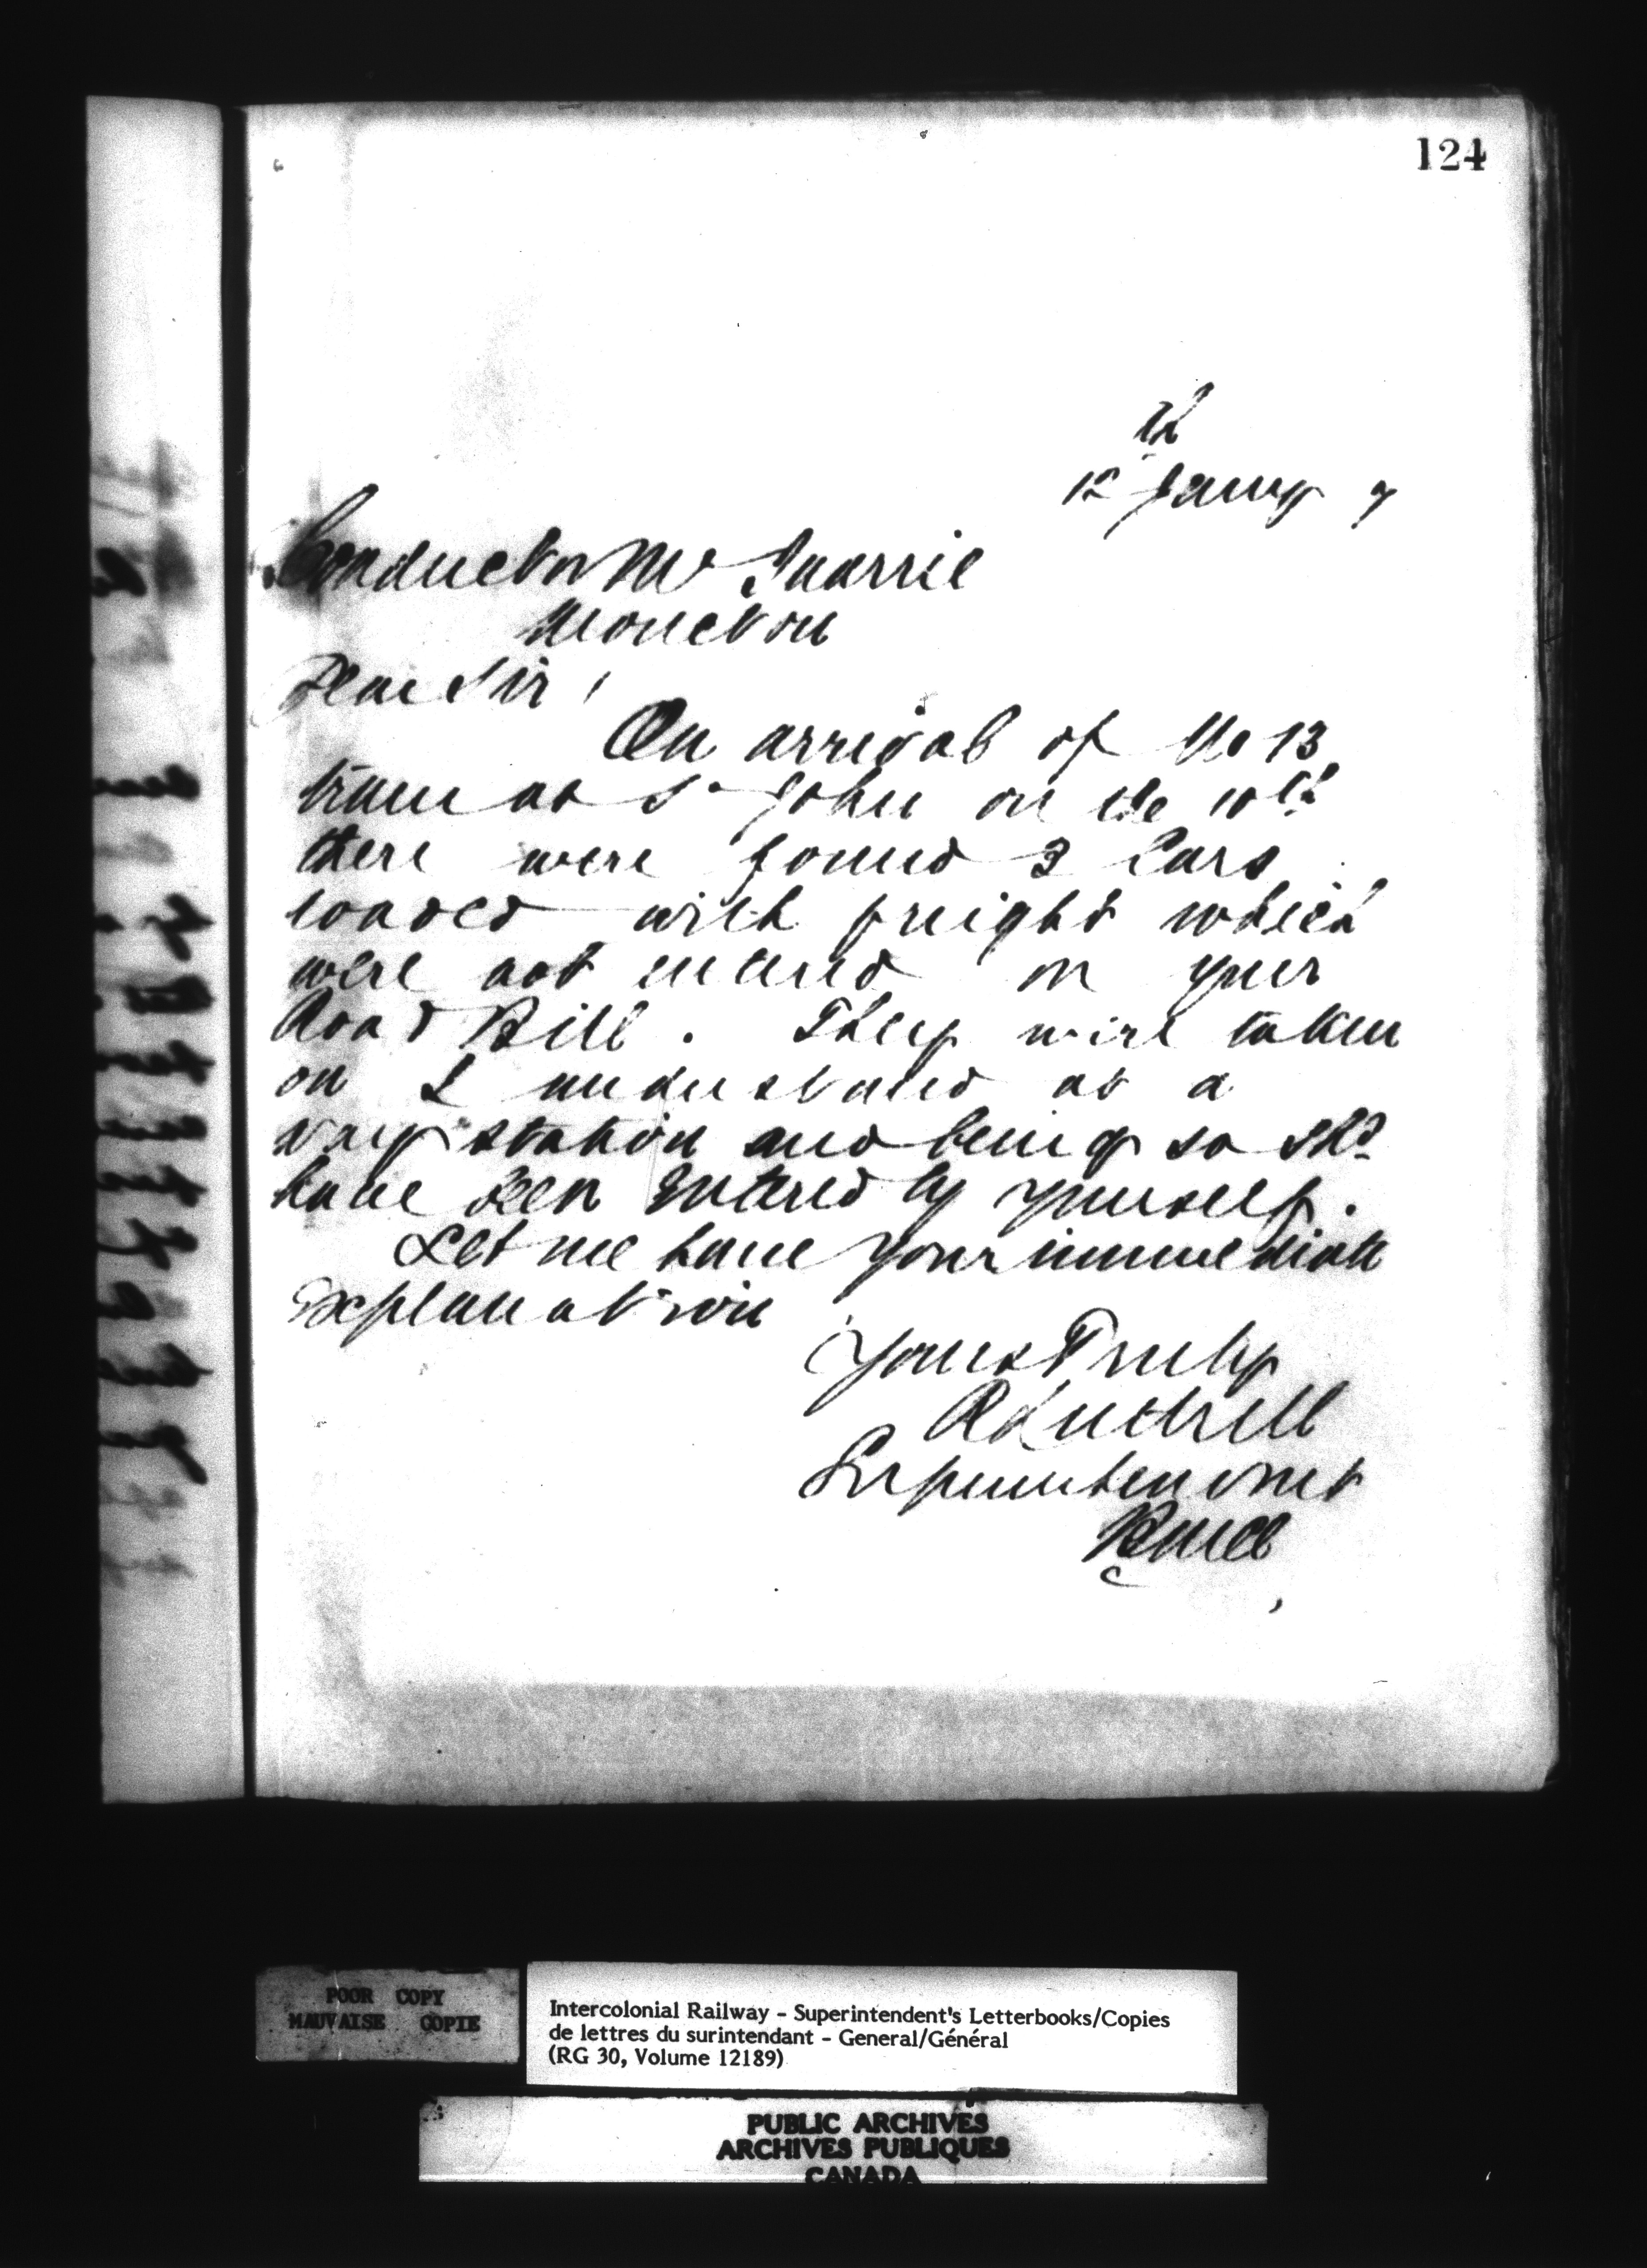 124
12th Jany 7
Conductor Mc Quarrie
Moncton
Dear Sir,
On arrival of No 13
train at St John on the 10th
there were found 3 Cars
loaded with freight which
were not entered on your
Road Bill. They were taken
on I understand at a
way station and being so shd
have been Entered by yourself.
Let me have your immediate
Explanation
Yours Truly
R Luttrell
Superintendent
POOR COPY
MAUVAISE COPIE
Intercolonial Railway - Superintendent's Letterbooks/Copies
de lettres du surintendant - General/Général
(RG 30, Volume 12189)
PUBLIC ARCHIVES
ARCHIVES PUBLIQUES
CANADA